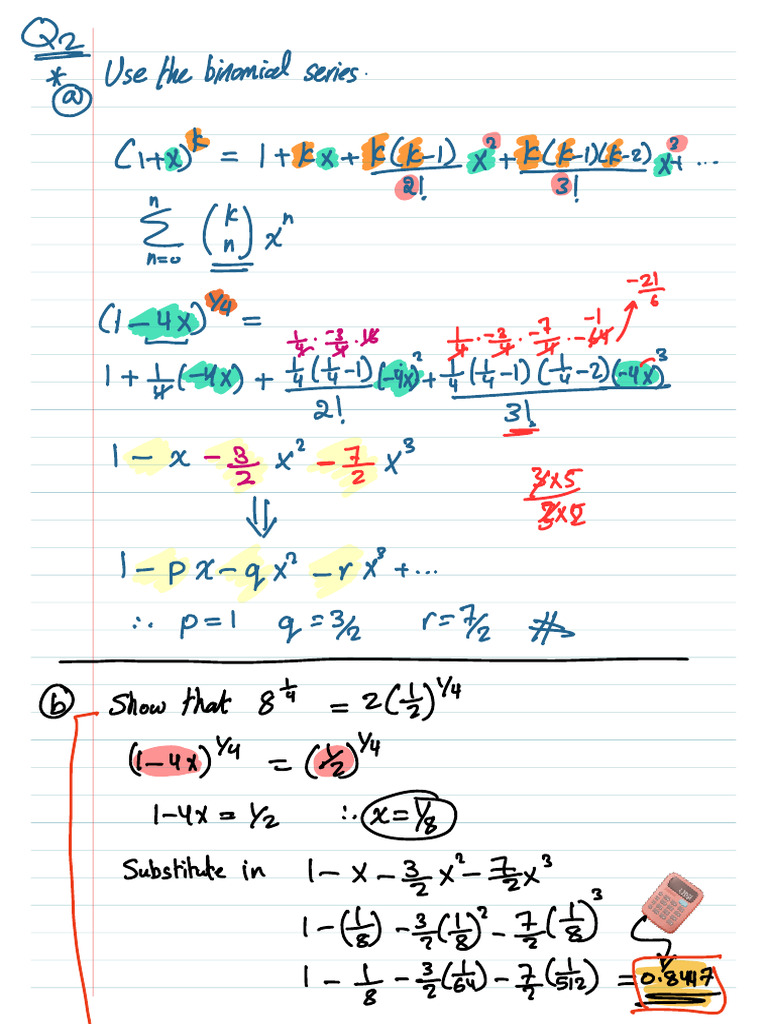 Q2
*
a) Use the binomial series.
(1+x)^k = 1 + kx + k(k-1)/2! x^2 + k(k-1)(k-2)/3! x^3 + ...
n Σ n=0 (k n) x^n
-21/6
(1-4x)^1/4 =
1/4 · -3/4 · 16 1/4 · -3/4 · -7/4 · -64 -1
1 + 1/4(-4x) + 1/4(1/4-1)(-4x)^2/2! + 1/4(1/4-1)(1/4-2)(-4x)^3/3!
1 - x - 3/2 x^2 - 7/2 x^3
⇓
1 - px - qx^2 - rx^3 + ...
∴ p=1 q=3/2 r=7/2
b) Show that 8^1/4 = 2(1/2)^1/4
(1-4x)^1/4 = (1/2)^1/4
1-4x = 1/2 ∴ x=1/8
Substitute in 1 - x - 3/2 x^2 - 7/2 x^3
1 - (1/8) - 3/2(1/8)^2 - 7/2(1/8)^3
1 - 1/8 - 3/2(1/64) - 7/2(1/512) = 0.8447